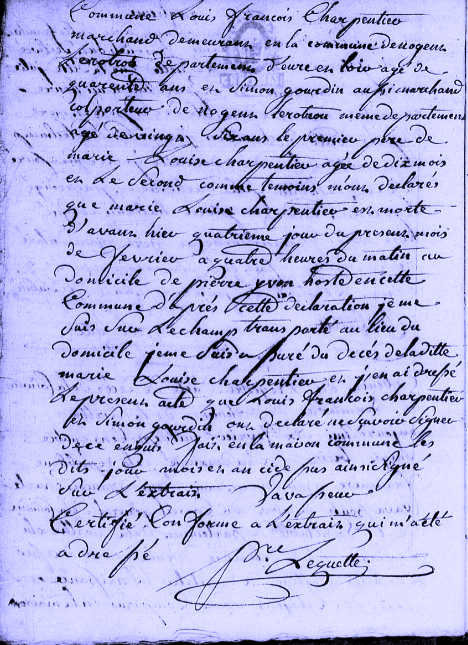 Commune Louis françois Charpentier
marchand demeurant en la commune de nogent
lerotrou Departement d'eure en loir agé de
quarente ans et Simon gourdin aussi marchand
colporteur de nogent lerotrou meme departement
agé de vingt Six ans le premier pere de
marie Louise charpentier agée de dix mois
et Le Second comme temoins mont declarés
que marie Louise charpentier est morte
D'avant hier quatrieme jour du present mois
de fevrier a quatre heures du matin au
domicile de pierre yvon hoste en cette
Commune D'aprés cette declaration je me
Suis Sur Le champ transporté au lieu du
domicile je me Suis assuré du decés de laditte
marie Louise charpentier et j'en ai dressé
Le present acte que Louis françois charpentier
et Simon gourdin ont declaré ne Scavoir Signer
de ce enquis fait en la maison commune les
dits jour mois et an cide sus ainsi Signé
Sur L'extrait Vavasseur
Certifié Conforme a L'extrait qui m'a été
adressé
Lequette